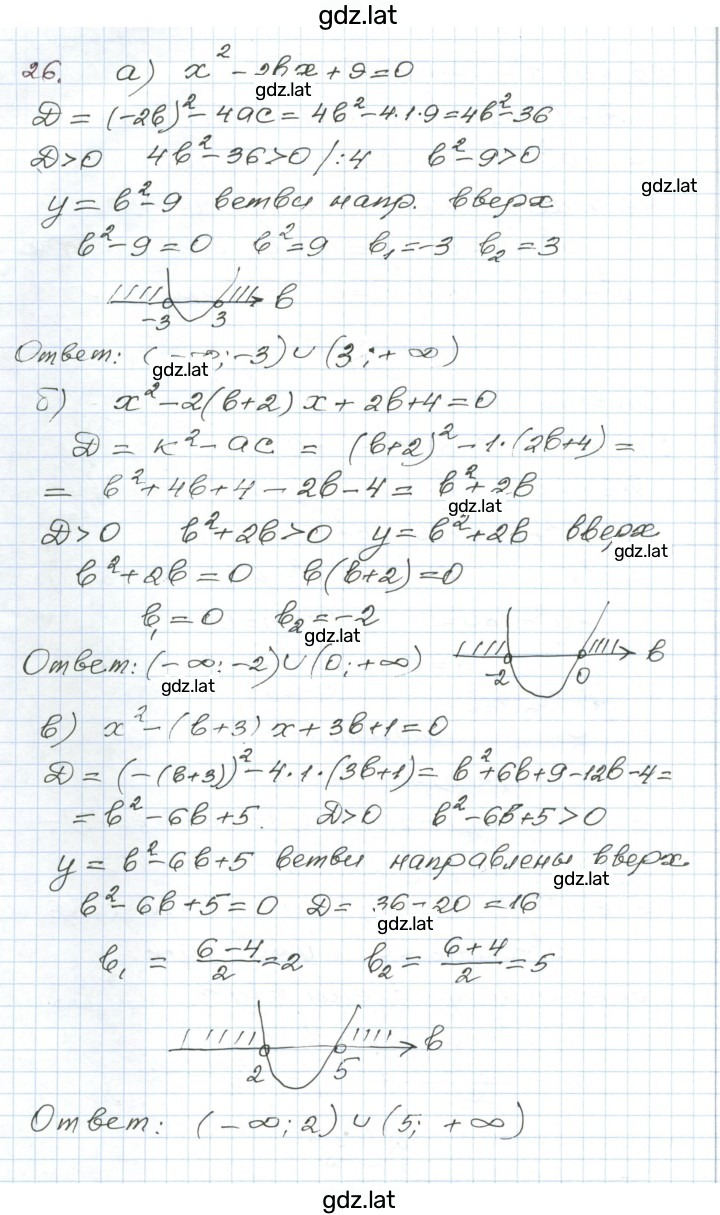 gdz.lat
26. а) x² - 2bx + 9 = 0
gdz.lat
D = (-2b)² - 4ac = 4b² - 4·1·9 = 4b² - 36
D > 0 4b² - 36 > 0 /:4 b² - 9 > 0
gdz.lat
y = b² - 9 ветви напр. вверх
b² - 9 = 0 b² = 9 b₁ = -3 b₂ = 3
-3 3 b
Ответ: (-∞; -3) ∪ (3; +∞)
gdz.lat
б) x² - 2(b+2)x + 2b + 4 = 0
D = k² - ac = (b+2)² - 1·(2b+4) =
= b² + 4b + 4 - 2b - 4 = b² + 2b
gdz.lat
D > 0 b² + 2b > 0 y = b² + 2b вверх
gdz.lat
b² + 2b = 0 b(b+2) = 0
b₁ = 0 b₂ = -2
gdz.lat
Ответ: (-∞; -2) ∪ (0; +∞)
-2 0 b
gdz.lat
в) x² - (b+3)x + 3b + 1 = 0
D = (-(b+3))² - 4·1·(3b+1) = b² + 6b + 9 - 12b - 4 =
= b² - 6b + 5. D > 0 b² - 6b + 5 > 0
y = b² - 6b + 5 ветви направлены вверх
gdz.lat
b² - 6b + 5 = 0 D = 36 - 20 = 16
gdz.lat
b₁ = (6-4)/2 = 2 b₂ = (6+4)/2 = 5
2 5 b
Ответ: (-∞; 2) ∪ (5; +∞)
gdz.lat